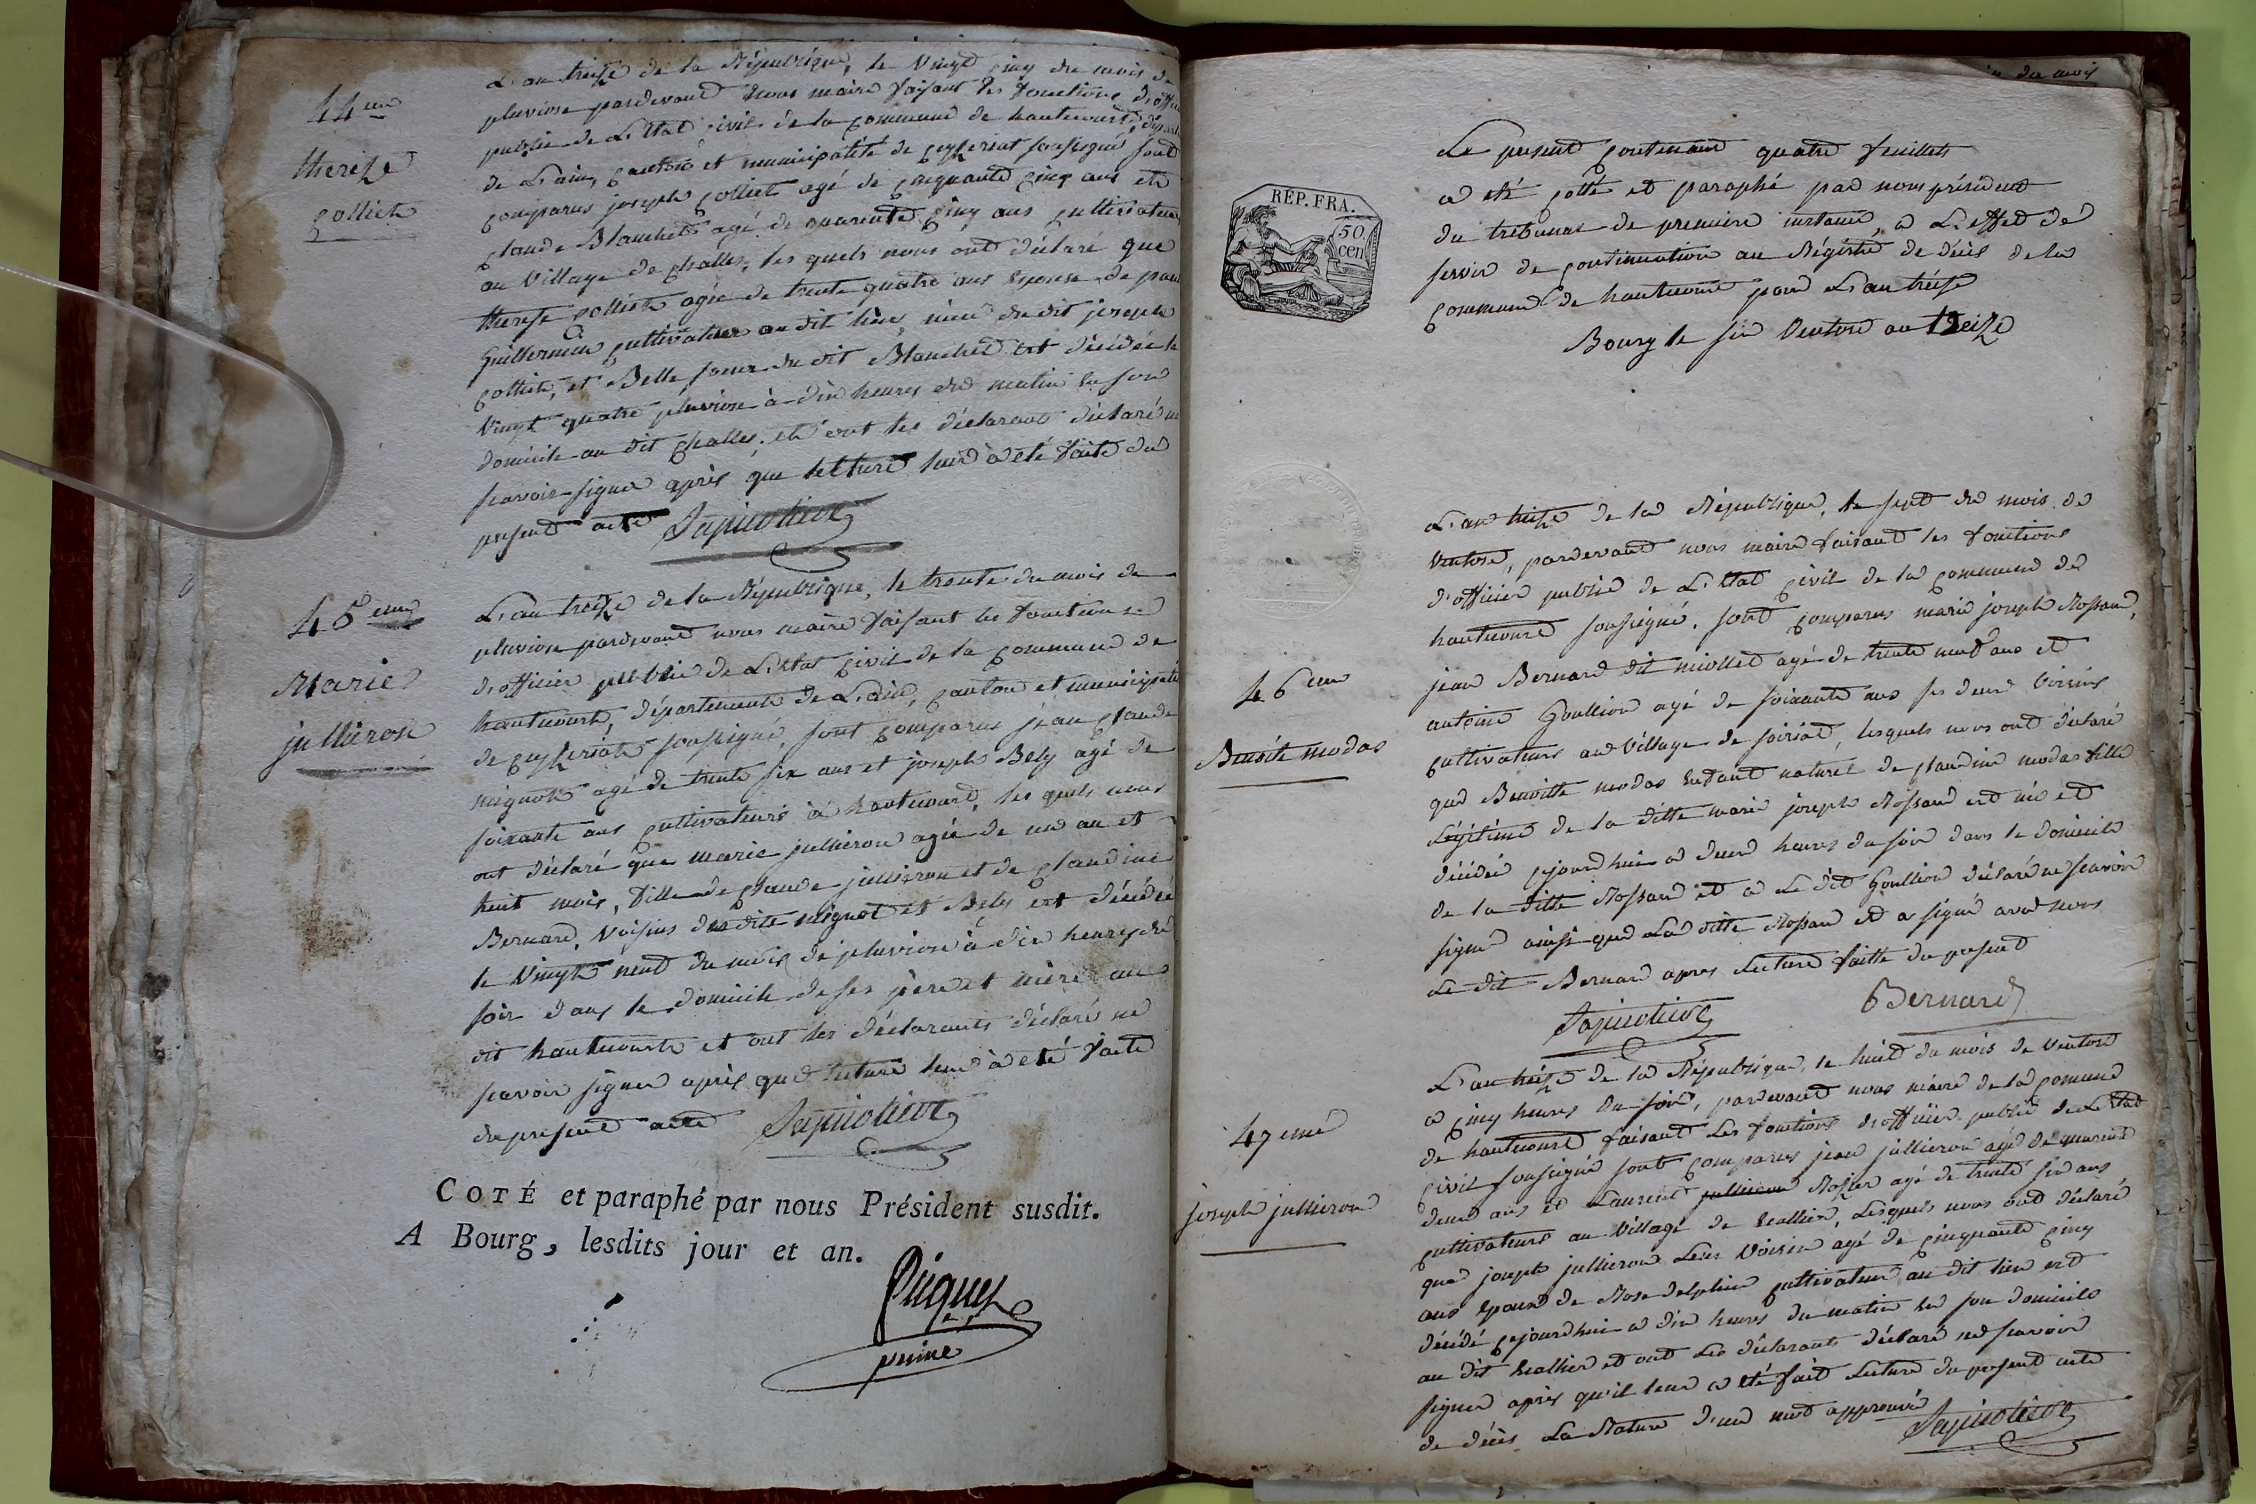 44eme
therese
colliet
L'an treize de la République, le vingt cinq du mois de
pluviose pardevant nous maire faisant les fonctions d'officier
public de L'Etat civil de la commune de hautecourt, départ
de L'ain, canton et municipalité de ceyzeriat soussigné sont
comparus joseph colliet agé de cinquante cinq ans et
claude Blanchet agé de quarente cinq ans cultivateurs
au village de challes, les quels nous ont déclaré que
therese colliet agée de trente quatre ans épouse de
Guillermin cultivateur au dit lieu, niece du dit joseph
colliet, et Belle soeur du dit Blanchet est décédée le
vingt quatre pluviose à dix heures du matin en son
domicile au dit challes, et ont les déclarants déclaré ne
scavoir signer après que lecture leur à eté faite du
present acte
45eme
Marie
jullieron
L'an treize de la République, le trente du mois de
pluviose pardevant nous maire faisant les fonctions
d'officier public de L'Etat civil de la commune de
hautecourt, département de L'ain, canton et municipalité
de ceyzeriat soussigné, sont comparus jean claude
mignot agé de trente six ans et joseph Bely agé de
soixante ans cultivateurs à hautecourt, les quels nous
ont déclaré que marie jullieron agée de un an et
huit mois, fille de claude jullieron et de claudine
Bernard, voisins des dits mignot et Bely est décédée
le vingt neuf du mois de pluviose à dix heures du
soir dans le domicile de ses père et mère au
dit hautecourt et ont les déclarants déclaré ne
scavoir signer après que lecture leur à eté faite
du present acte
COTÉ et paraphé par nous Président susdit.
A Bourg, lesdits jour et an.
Le present contenant quatre feuillets
a été cotté et paraphé par nous président
du tribunal de premiere instance, a L'effet de
servir de continuation au Régistre de décès de la
commune de hautecourt pour L'an treize
Bourg le six Ventose an treize
REP. FRA.
50
cen
46eme
Benoite modas
L'an treize de la République, le sept du mois de
Ventose, pardevant nous maire faisant les fonctions
d'officier public de L'Etat civil de la commune de
hautecourt soussigné, sont comparus marie joseph Rossand,
jean Bernard dit miollet agé de trente neuf ans et
antoine Goullion agé de soixante ans ses deux voisins
cultivateurs au village de soiriat, lesquels nous ont déclaré
que Benoitte modas enfant naturel de claudine modas fille
Légitime de la ditte marie joseph Rossand est né et
décédé cejourdhui a deux heures du soir dans le domicile
de la ditte Rossand et a Le dit Goullion déclaré ne scavoir
signer ainsi que La ditte Rossand et a signé avec nous
Le dit Bernard apres Lecture faitte du present
Bernard
47eme
joseph jullieron
L'an treize de la République, le huit du mois de Ventose
a cinq heures du soir, pardevant nous maire de la commune
de hautecourt faisant Les fonctions d'officier public de L'Etat
civil soussigné sont comparus jean jullieron agé de quarente
deux ans et Laurent jullieron Rozier agé de trente six ans
cultivateurs au village de , Lesquels nous ont déclaré
que joseph jullieron Leur Voisin agé de cinquante cinq
ans epoux de Rose delphin cultivateur au dit lieu est
décédé cejourdhui a dix heures du matin en son domicile
au dit et ont Les déclarants déclaré ne scavoir
signer après qu'il leur a été fait Lecture du present acte
de décès La Rature d'un mot approuvée